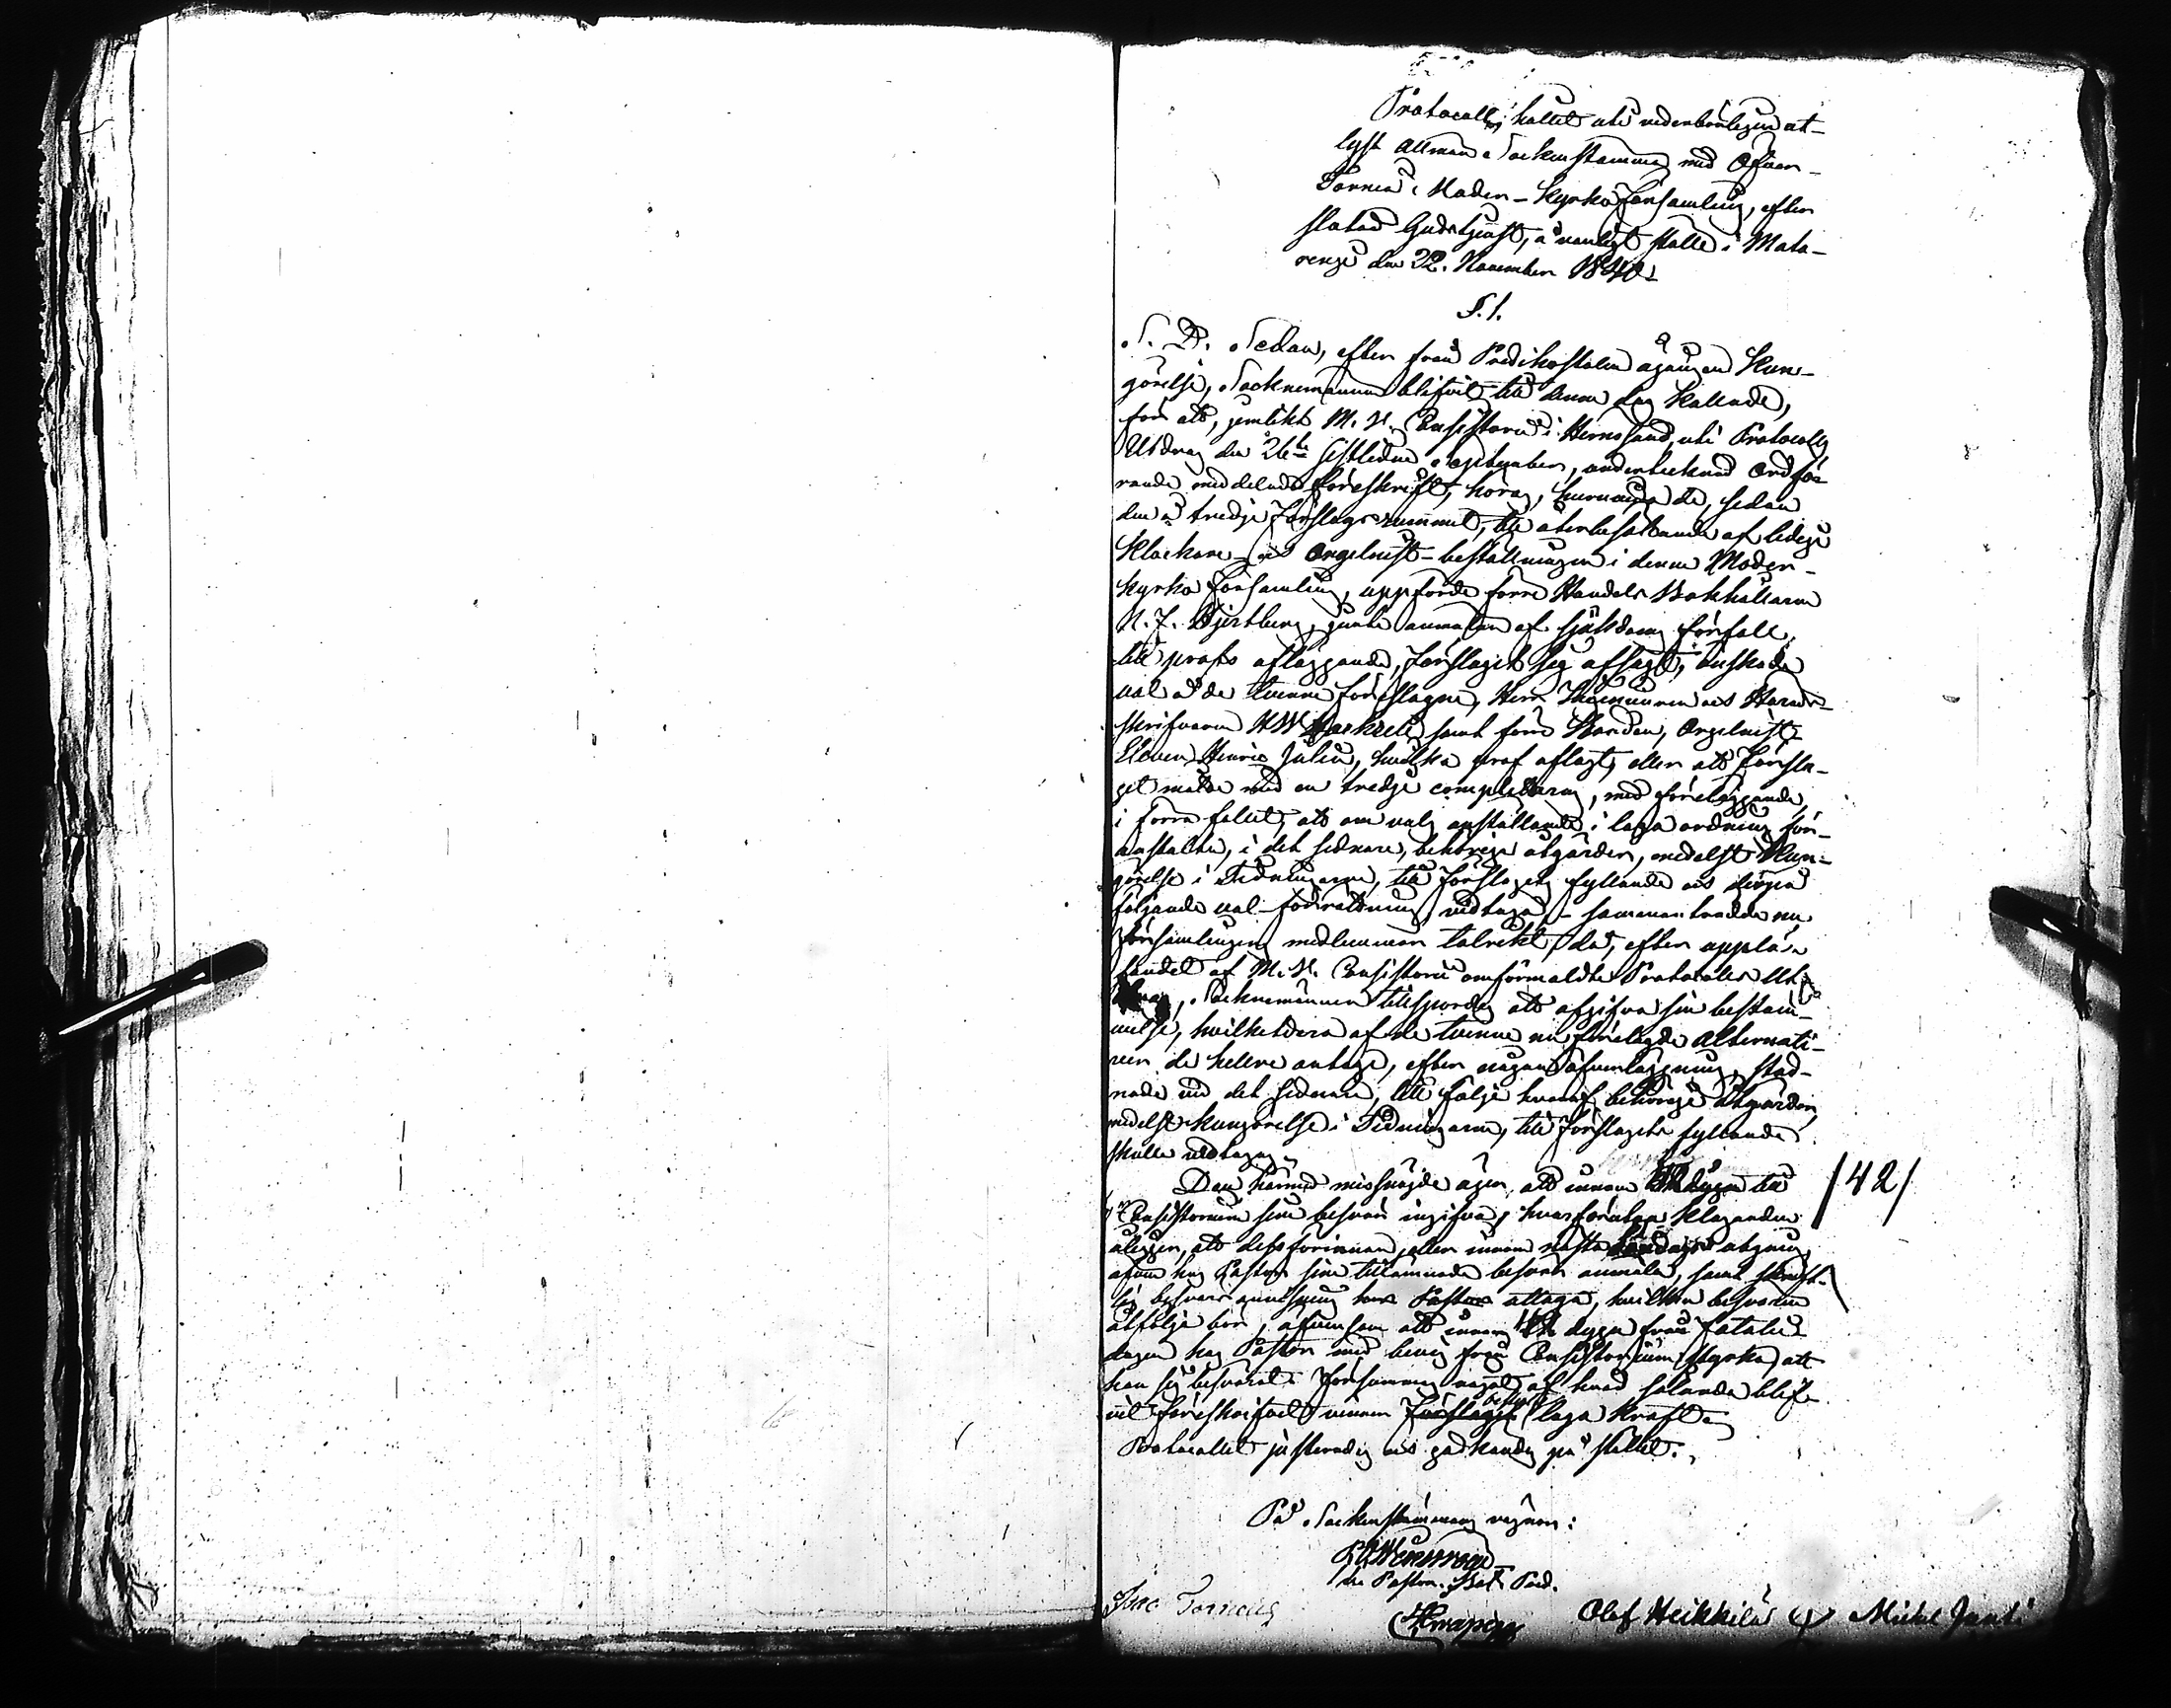 Protocoll, hållet uti vederbörligen ut-
lyst Allmän Sockenstämma med Öfver-
Torneå Moder-Kyrko församling, efter
slutad Gudstjenst, å vanligt ställe i Mata-
rengi den 22. November 1840
§.1.
S. D. Sedan, efter från Predikostolen ågången Kun-
görelse, Socknemännen blifvit till denna dag kallade,
för att, jemlikt M. V. Consistorii i Hernösand, uti Protocolls
Utdrag den 26te sistledne September, undertecknad Ordfö-
rande meddelade föreskrift, höras, huruvida de, sedan
den å tredje förslagsrummet, till återbesättande af lediga
Klockare- och Orgelnist-beställningen i denna Moder-
kyrko församling, uppförde förre Handels Bokhållaren
N. J. Bjertberg, genom anmälan af sjukdoms förfall,
till profs afläggande, förslaget sig afsagt, önskade
val å de tvenne föreslagne, Herr und Härads-
skrifvaren samt förre Orgelnist-
Eleven Henric Julin, hvilka prof aflagt, eller att försla-
get måtte med en tredje completteras, med föreläggande,
i förra fallet, att om vals anställande i laga ordning för-
anstalta, i det sednare, behöriga åtgärder, medelst Kun-
görelse i Tidningarne, till förslagets fyllande och derpå
följande val-förrättning vidtaga, - sammanträdde nu
församlingens medlemmar talrikt, då, efter upplä-
sandet af M. V. Consistorii omförmäldte Protocolls Ut-
drag, Socknemännen tillspordes att afgifva sin bestäm-
melse, hvilketdera af de tvenne nu förelagde alternati-
ver de hellre antoge, efter någon öfverläggning, stad-
nade vid det sednare, till följe hvaraf behöriga åtgärder,
medelst kungörelse i Tidningarne, till förslagets fyllande
skulle vidtagas.
Den härmed missnöjde äger, att innom dygn till /42/
Consistorium sine besvär ingifva; hvarförutan Klaganden
åligger, att dessförinnan, eller innom nästa utgång
äfven hos Pastor sine tillämnade besvär anmäla, samt skrift-
lig besvärs anvisning hos Pastor uttaga, hvilken besvären
åtfölja bör, äfvensom att innom dygn från fatalie
dagen hos Pastor med bevis från Consistorium styrka, att
han sig besvärat. Försummas något af hvad sålunda blif-
vit föreskrifvet vinner beslutet laga kraft.
Protocollet justerades och godkändes på stället.
På Sockenstämmans vägnar:
v. Pastor. Bat. Pred.
Isac Torneus
Olof Heikkilä Michel Junti